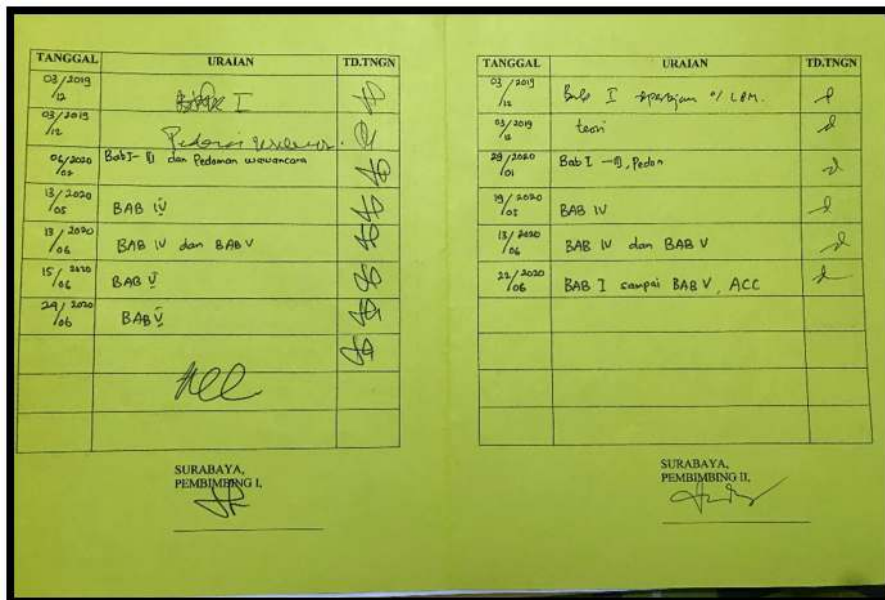 TANGGAL URAIAN TD.TNGN
03/2019
/12 I
03/2019
/12 Pedoman
06/2020
/02 Bab I - III dan Pedoman wawancara
13/2020
/05 BAB IV
13/2020
/06 BAB IV dan BAB V
15/2020
/06 BAB V
24/2020
/06 BAB V
Acc
SURABAYA,
PEMBIMBING I,
TANGGAL URAIAN TD.TNGN
03/2019
/12 Bab I LBM.
03/2019
/12 teori
28/2020
/01 Bab I - III, Pedon
19/2020
/05 BAB IV
13/2020
/06 BAB IV dan BAB V
22/2020
/06 BAB I sampai BAB V, ACC
SURABAYA,
PEMBIMBING II,